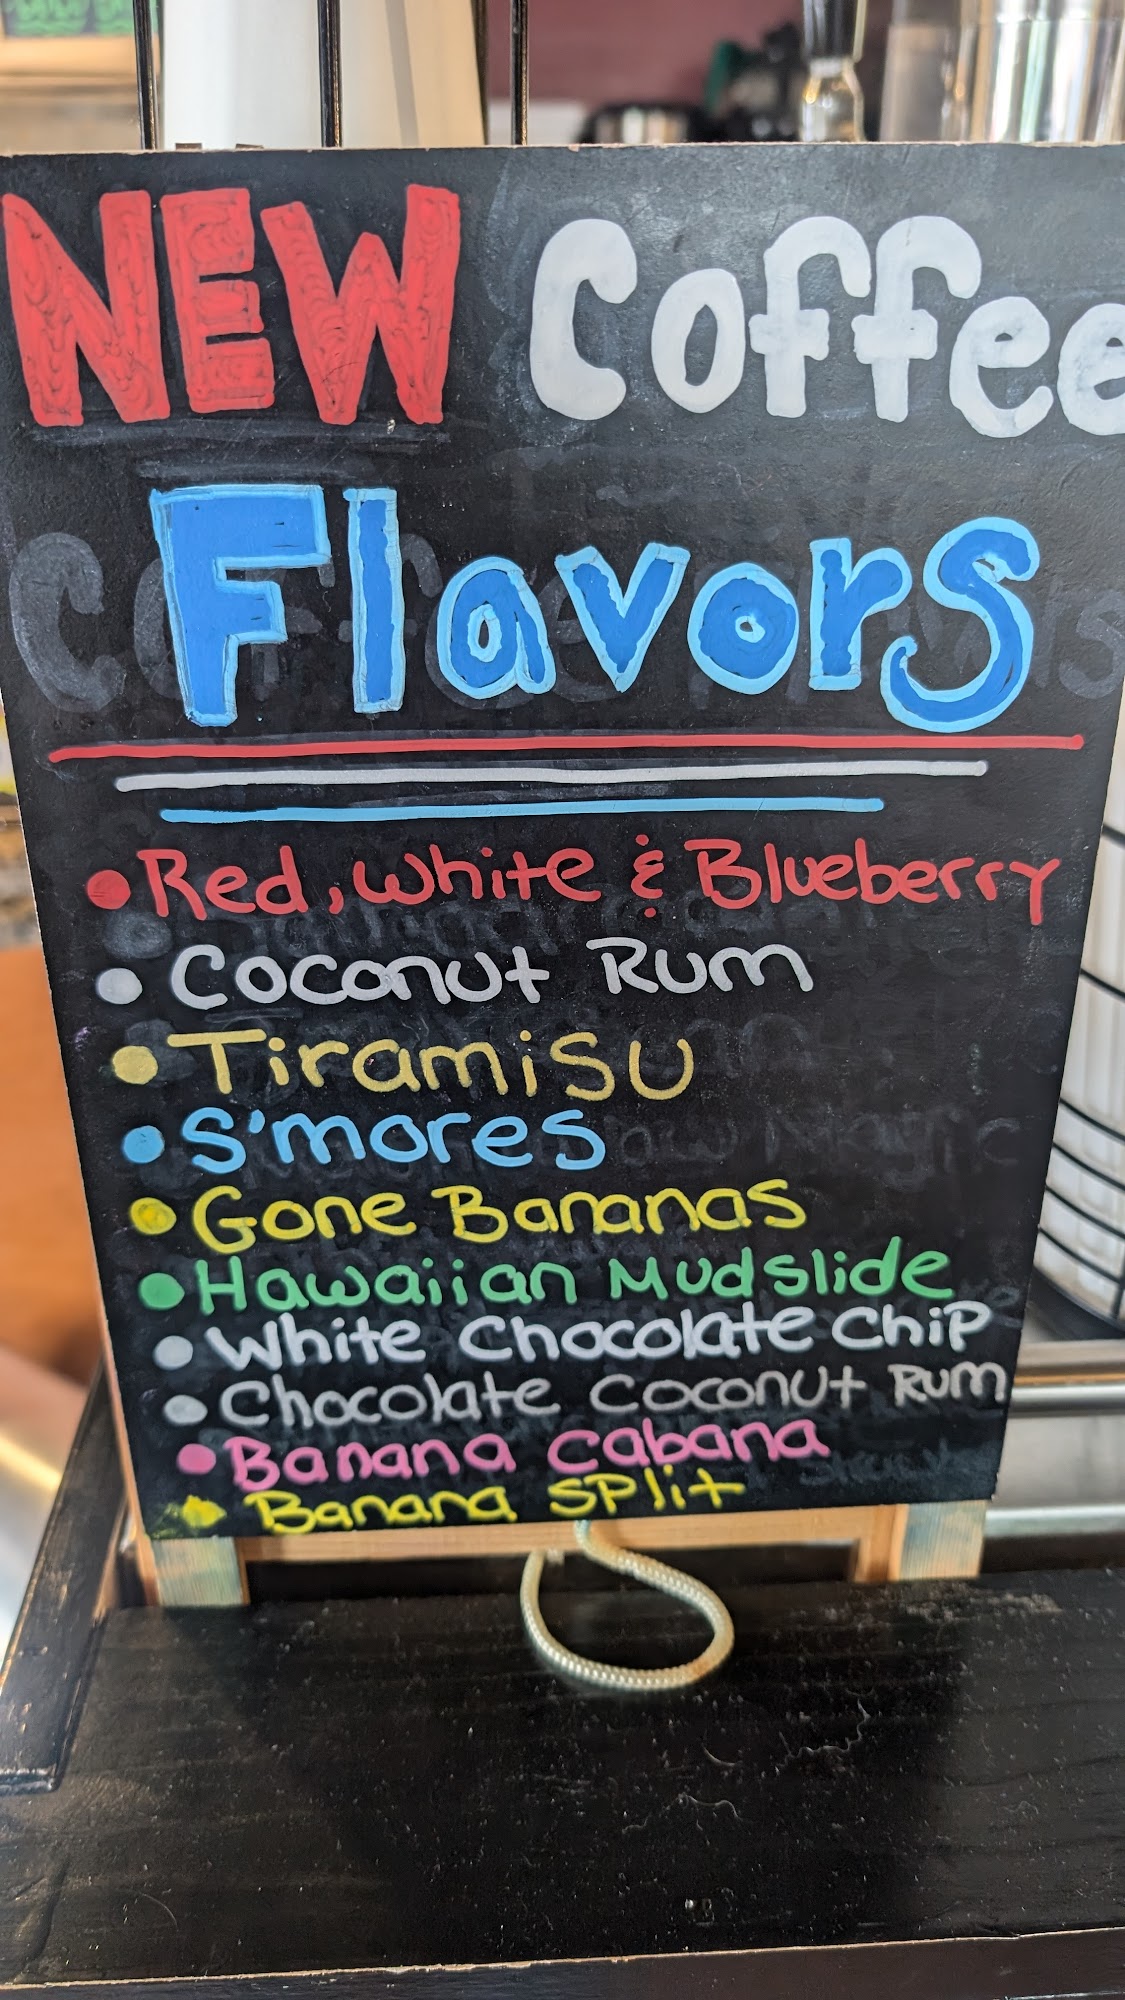 NEW Coffee
Flavors
• Red, White & Blueberry
• Coconut Rum
• Tiramisu
• S'mores
• Gone Bananas
• Hawaiian Mudslide
• White Chocolate Chip
• Chocolate Coconut Rum
• Banana Cabana
• Banana Split